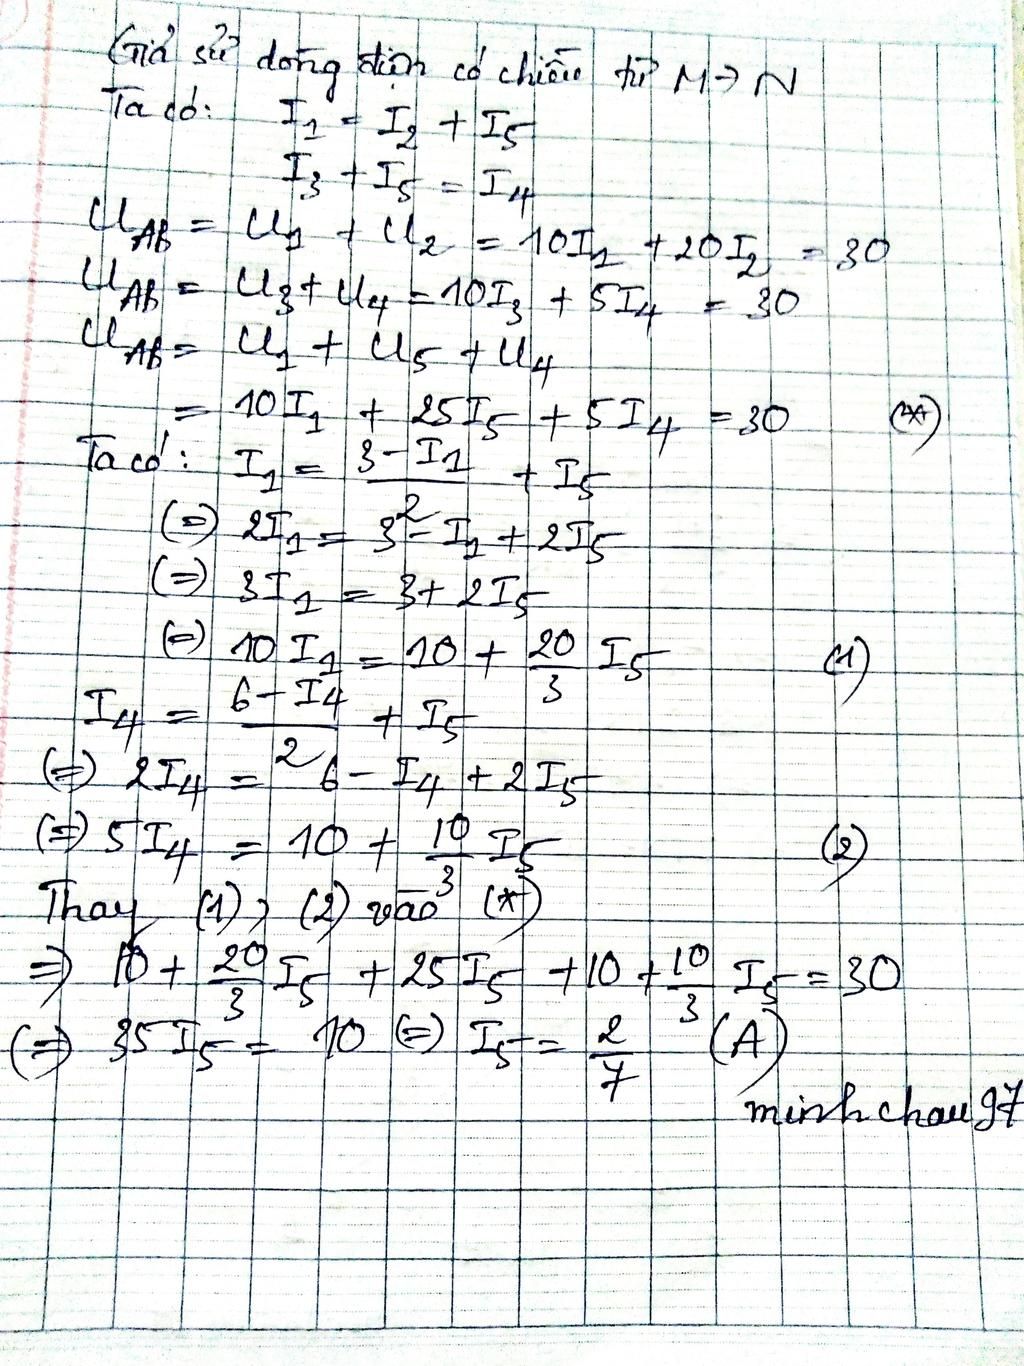 Giả sử dòng điện có chiều từ M → N
Ta có: I₁ = I₂ + I₅
I₃ + I₅ = I₄
U_AB = U₁ + U₂ = 10I₁ + 20I₂ = 30
U_AB = U₃ + U₄ = 10I₃ + 5I₄ = 30
U_AB = U₁ + U₅ + U₄
= 10I₁ + 25I₅ + 5I₄ = 30 (*)
Ta có: I₁ = (3 - I₁)/2 + I₅
(=) 2I₁ = 3 - I₁ + 2I₅
(=) 3I₁ = 3 + 2I₅
(=) 10I₁ = 10 + 20/3 I₅ (1)
I₄ = (6 - I₄)/2 + I₅
(=) 2I₄ = 6 - I₄ + 2I₅
(=) 5I₄ = 10 + 10/3 I₅ (2)
Thay (1), (2) vào (*)
=> 10 + 20/3 I₅ + 25I₅ + 10 + 10/3 I₅ = 30
(=) 35I₅ = 10 (=) I₅ = 2/7 (A)
minhchau97